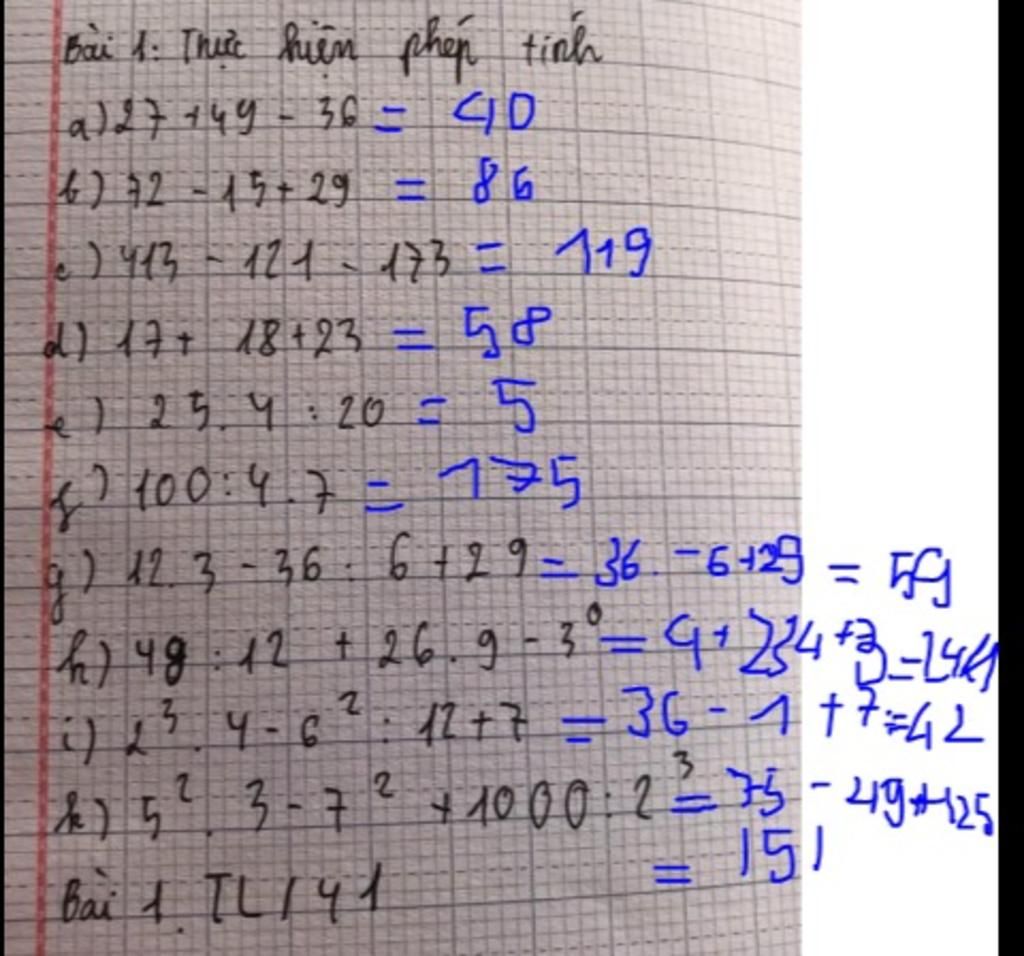 Bài 1: Thực hiện phép tính
a) 27 + 49 - 36 = 40
b) 72 - 15 + 29 = 86
c) 413 - 121 - 173 = 119
d) 17 + 18 + 23 = 58
e) 25 . 4 : 20 = 5
f) 100 : 4 . 7 = 175
g) 12 . 3 - 36 : 6 + 29 = 36 . - 6 + 29 = 59
h) 48 : 12 + 26 . 9 - 3⁰ = 4 + 234 + 3 = 241
i) 2³ . 4 - 6² : 12 + 7 = 36 - 1 + 7 = 42
k) 5² . 3 - 7² + 1000 : 2³ = 75 - 49 + 125
= 151
Bài 1. TL / 41